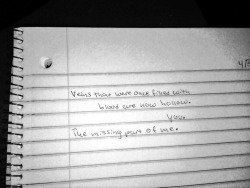 4/3
Veins that were once filled with
blood are now hollow.
You.
The missing part of me.